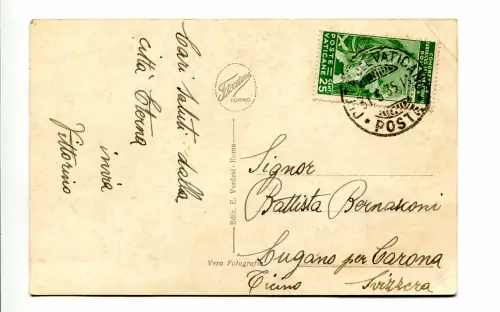 Cari saluti dalla
città Eterna
invia
Vittorino
TORINO
Ediz. E. Verdesi - Roma
Vera Fotografia
POSTE
VATICANE 25
POSTE
Signor
Battista Bernasconi
Lugano per Carona
Ticino Svizzera